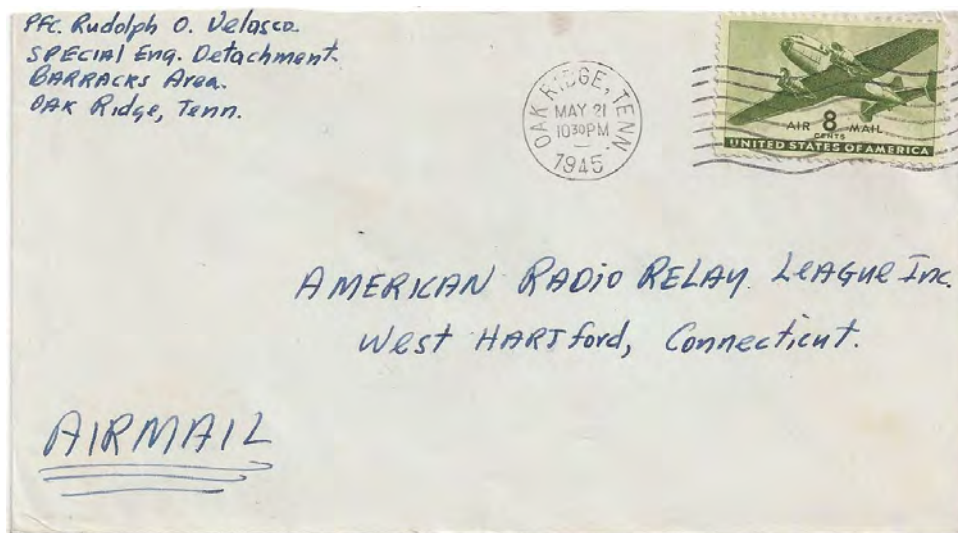 Pfc. Rudolph O. Velasco.
SPECIAl Eng. Detachment.
BARRACKs Area.
OAK Ridge, Tenn.
OAK RIDGE, TENN.
MAY 21
1030PM
1945
AIR 8 MAIL
CENTS
UNITED STATES OF AMERICA
AMERICAN RADiO RELAY. LeAGUe Inc.
West HARTford, Connecticut.
AIRMAIL